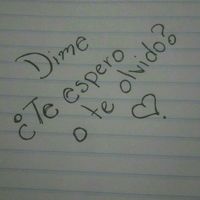 Dime
¿Te espero
o te olvido?